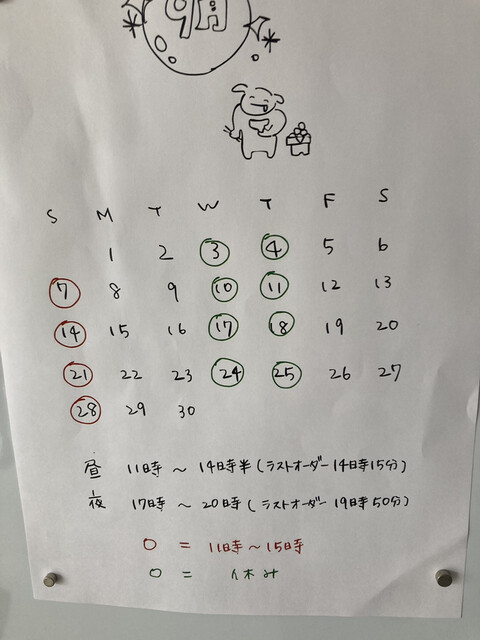 9月
S M T W T F S
1 2 3 4 5 6
7 8 9 10 11 12 13
14 15 16 17 18 19 20
21 22 23 24 25 26 27
28 29 30
昼 11時 ~ 14時半 (ラストオーダー 14時15分)
夜 17時 ~ 20時 (ラストオーダー 19時50分)
○ = 11時~15時
○ = 休み